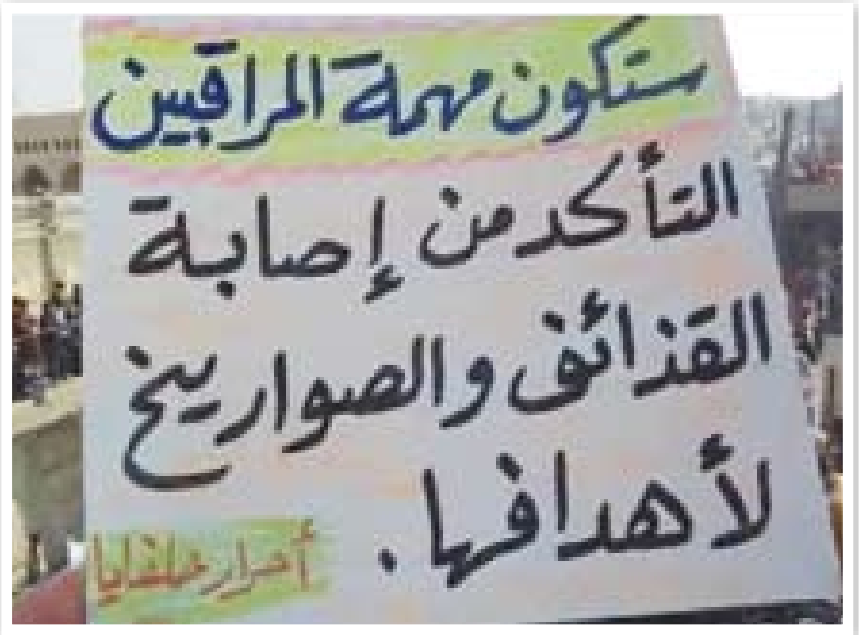 ستكون مهمة المراقبين
التأكد من إصابة
القذائف والصواريخ
لأهدافها.
أحرار حلفايا